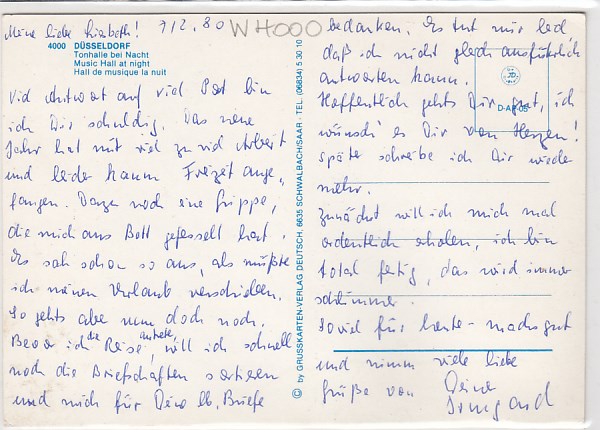 Meine liebe Lisbeth! 7/2.80
WH000
4000 DÜSSELDORF
Tonhalle bei Nacht
Music Hall at night
Hall de musique la nuit
Viel Antwort auf viel Post bin
ich Dir schuldig. Das neue
Jahr hat mit viel zu viel Arbeit
und leider kaum Freizeit ange-
fangen. Dazu noch eine Grippe,
die mich ans Bett gefesselt hat.
Es sah schon so aus, als müßte
ich meinen Urlaub verschieben.
So gehts aber nun doch noch.
Bevor ich die Reise antrete, will ich schnell
noch die Briefschaften sortieren
und mich für Deine lb. Briefe
© by GRUSSKARTEN-VERLAG DEUTSCH, 6635 SCHWALBACH/SAAR · TEL. (06834) 5 30 10
bedanken. Es tut mir leid
daß ich nicht gleich ausführlich
antworten kann.
Hoffentlich gehts Dir gut, ich
wünsch' es Dir von Herzen!
später schreibe ich Dir wieder
mehr.
Zunächst will ich mich mal
ordentlich erholen, ich bin
total fertig, das wird immer
schlimmer.
Soviel für heute - machs gut
und nimm viele liebe
Grüße von Deine
Irmgard
D-A 05